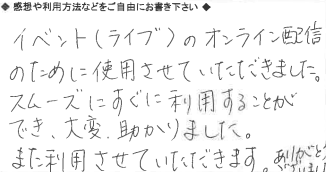 ◆ 感想や利用方法などをご自由にお書き下さい ◆
イベント(ライブ)のオンライン配信
のために使用させていただきました。
スムーズにすぐに利用することが
でき、大変、助かりました。
また利用させていただきます。ありがと